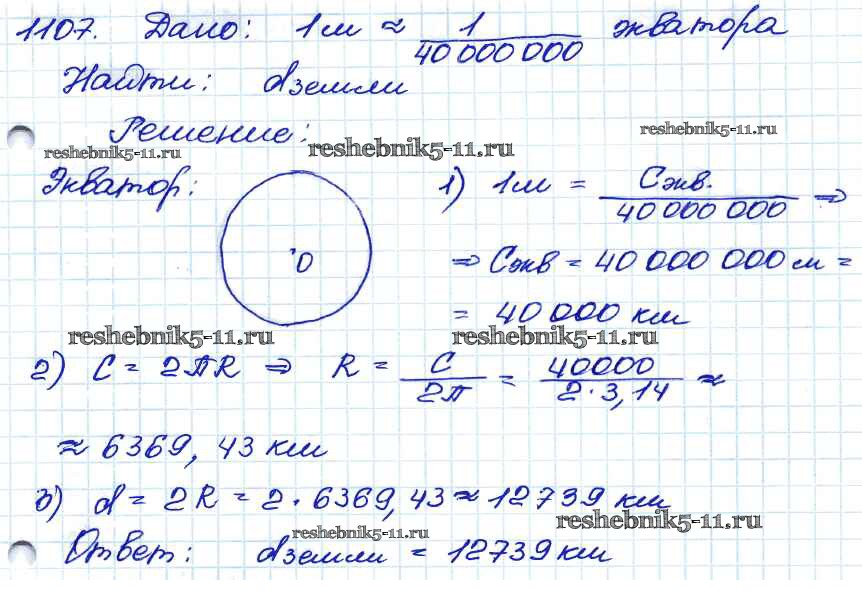 1107. Дано: 1м ≈ 1/40 000 000 экватора
Найти: dземли
Решение:
reshebnik5-11.ru
reshebnik5-11.ru
reshebnik5-11.ru
Экватор:
O
1) 1м = Cэкв./40 000 000 ⇒
⇒ Cэкв = 40 000 000 м =
= 40 000 км
reshebnik5-11.ru
reshebnik5-11.ru
2) C = 2πR ⇒ R = C/2π = 40000/2·3,14 ≈
≈ 6369,43 км
3) d = 2R = 2·6369,43 ≈ 12739 км
reshebnik5-11.ru
reshebnik5-11.ru
Ответ: dземли = 12739 км